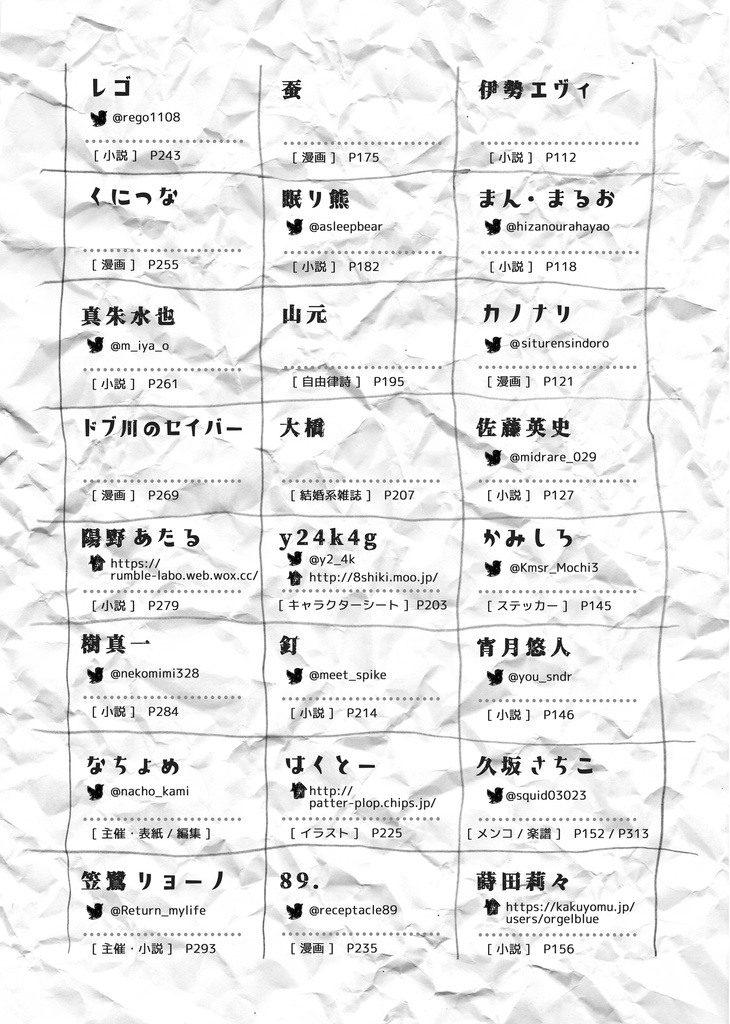 レゴ
@rego1108
[ 小説 ] P243
蚕
[ 漫画 ] P175
伊勢エヴィ
[ 小説 ] P112
くにつな
[ 漫画 ] P255
眠り熊
@asleepbear
[ 小説 ] P182
まん・まるお
@hizanourahayao
[ 小説 ] P118
真朱水也
@m_iya_o
[ 小説 ] P261
山元
[ 自由律詩 ] P195
カノナリ
@siturensindoro
[ 漫画 ] P121
ドブ川のセイバー
[ 漫画 ] P269
大橋
[ 結婚系雑誌 ] P207
佐藤英史
@midrare_029
[ 小説 ] P127
陽野あたる
https://
rumble-labo.web.wox.cc/
[ 小説 ] P279
y24k4g
@y2_4k
http://8shiki.moo.jp/
[ キャラクターシート ] P203
かみしろ
@Kmsr_Mochi3
[ ステッカー ] P145
樹真一
@nekomimi328
[ 小説 ] P284
釘
@meet_spike
[ 小説 ] P214
宵月悠人
@you_sndr
[ 小説 ] P146
なちょめ
@nacho_kami
[ 主催・表紙 / 編集 ]
はくとー
http://
patter-plop.chips.jp/
[ イラスト ] P225
久坂さちこ
@squid03023
[ メンコ / 楽譜 ] P152 / P313
笠鷺リョーノ
@Return_mylife
[ 主催・小説 ] P293
89.
@receptacle89
[ 漫画 ] P235
蒔田莉々
https://kakuyomu.jp/
users/orgelblue
[ 小説 ] P156